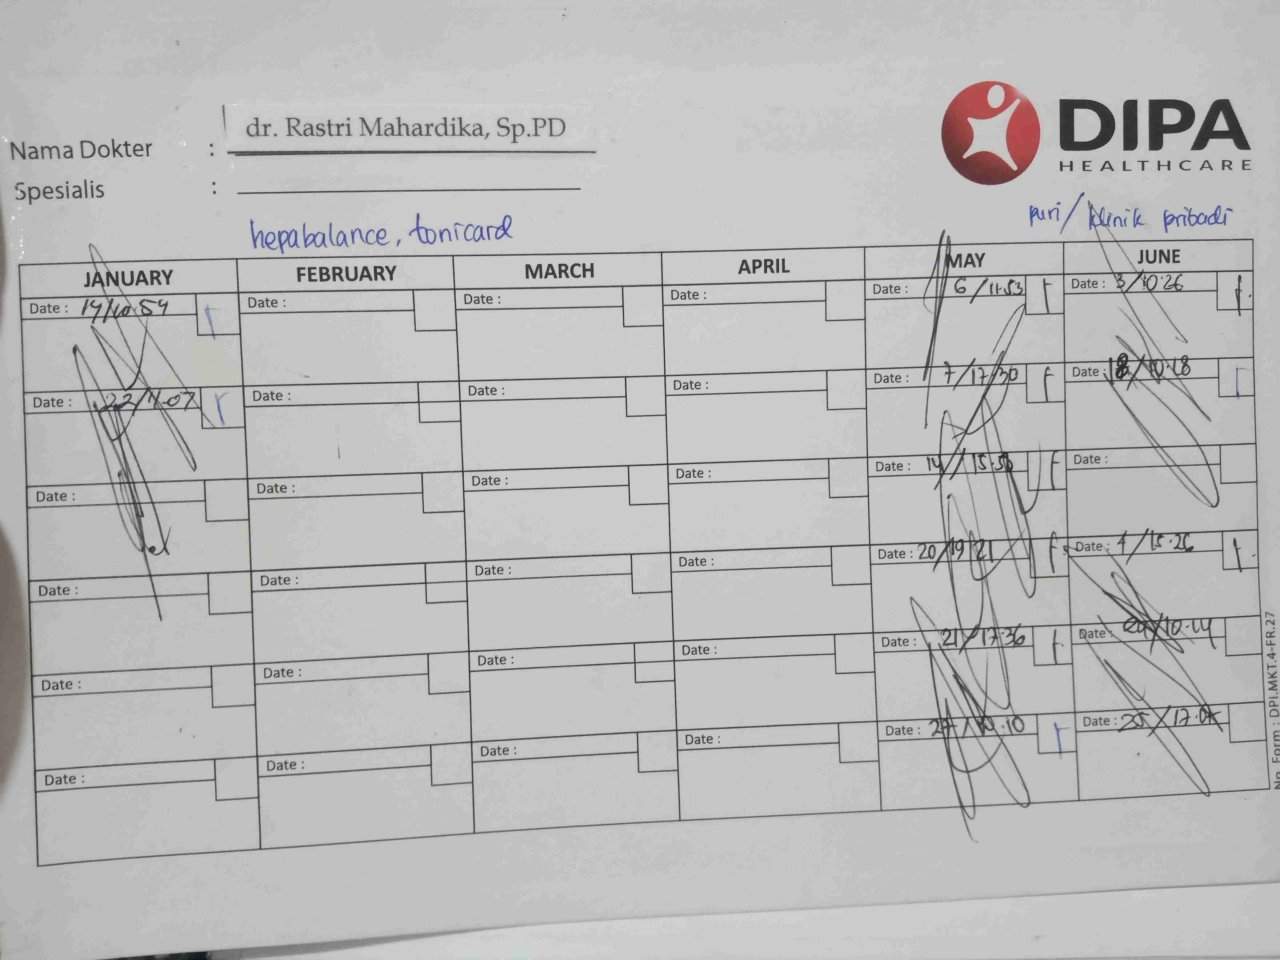 DIPA
HEALTHCARE
Nama Dokter : dr. Rastri Mahardika, Sp.PD
Spesialis :
hepabalance, tonicard
puri/ klinik pribadi
JANUARY FEBRUARY MARCH APRIL MAY JUNE
Date : 14/10.54 Date : Date : Date : Date : 6/11.53 Date : 3/10.26
Date : 22/11.07 Date : Date : Date : Date : 7/17/30 Date : 18/10.18
Date : Date : Date : Date : Date : 14/15.50 Date :
Date : Date : Date : Date : Date : 20/19 21 Date : 4/15.26
Date : Date : Date : Date : Date : 21/17.36 Date : /10.14
Date : Date : Date : Date : Date : 27/10.10 Date : 25/17.05
No. Form : DPI.MKT.4-FR.27